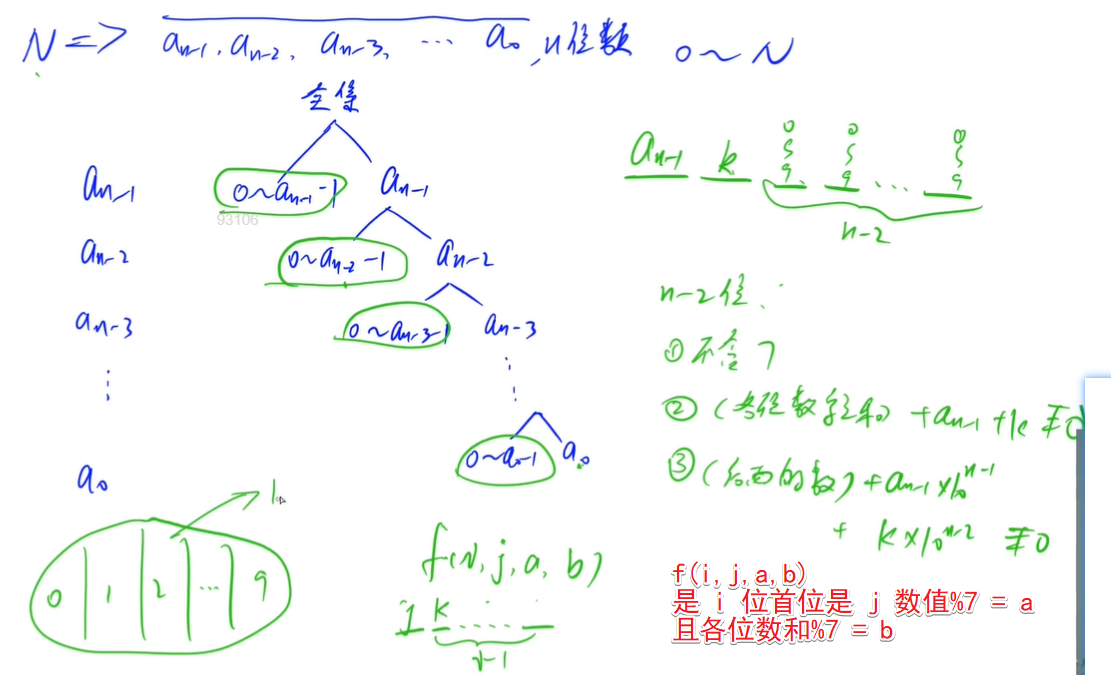 N => aₙ₋₁, aₙ₋₂, aₙ₋₃, … a₀, n位数 0~N
全集
aₙ₋₁ 0~aₙ₋₁-1 aₙ₋₁
93106
aₙ₋₂ 0~aₙ₋₂-1 aₙ₋₂
aₙ₋₃ 0~aₙ₋₃-1 aₙ₋₃
⋮
a₀ 0~a₀-1 a₀
0 1 2 … 9
f(N, j, a, b)
j k ……
aₙ₋₁ k 0~9 0~9 … 0~9
n-2
n-2位:
① 不含7
② (各位数字之和) + aₙ₋₁ + k ≢0
③ (后面的数) + aₙ₋₁×10ⁿ⁻¹
+ k×10ⁿ⁻² ≢0
f(i,j,a,b)
是 i 位首位是 j 数值%7 = a
且各位数和%7 = b